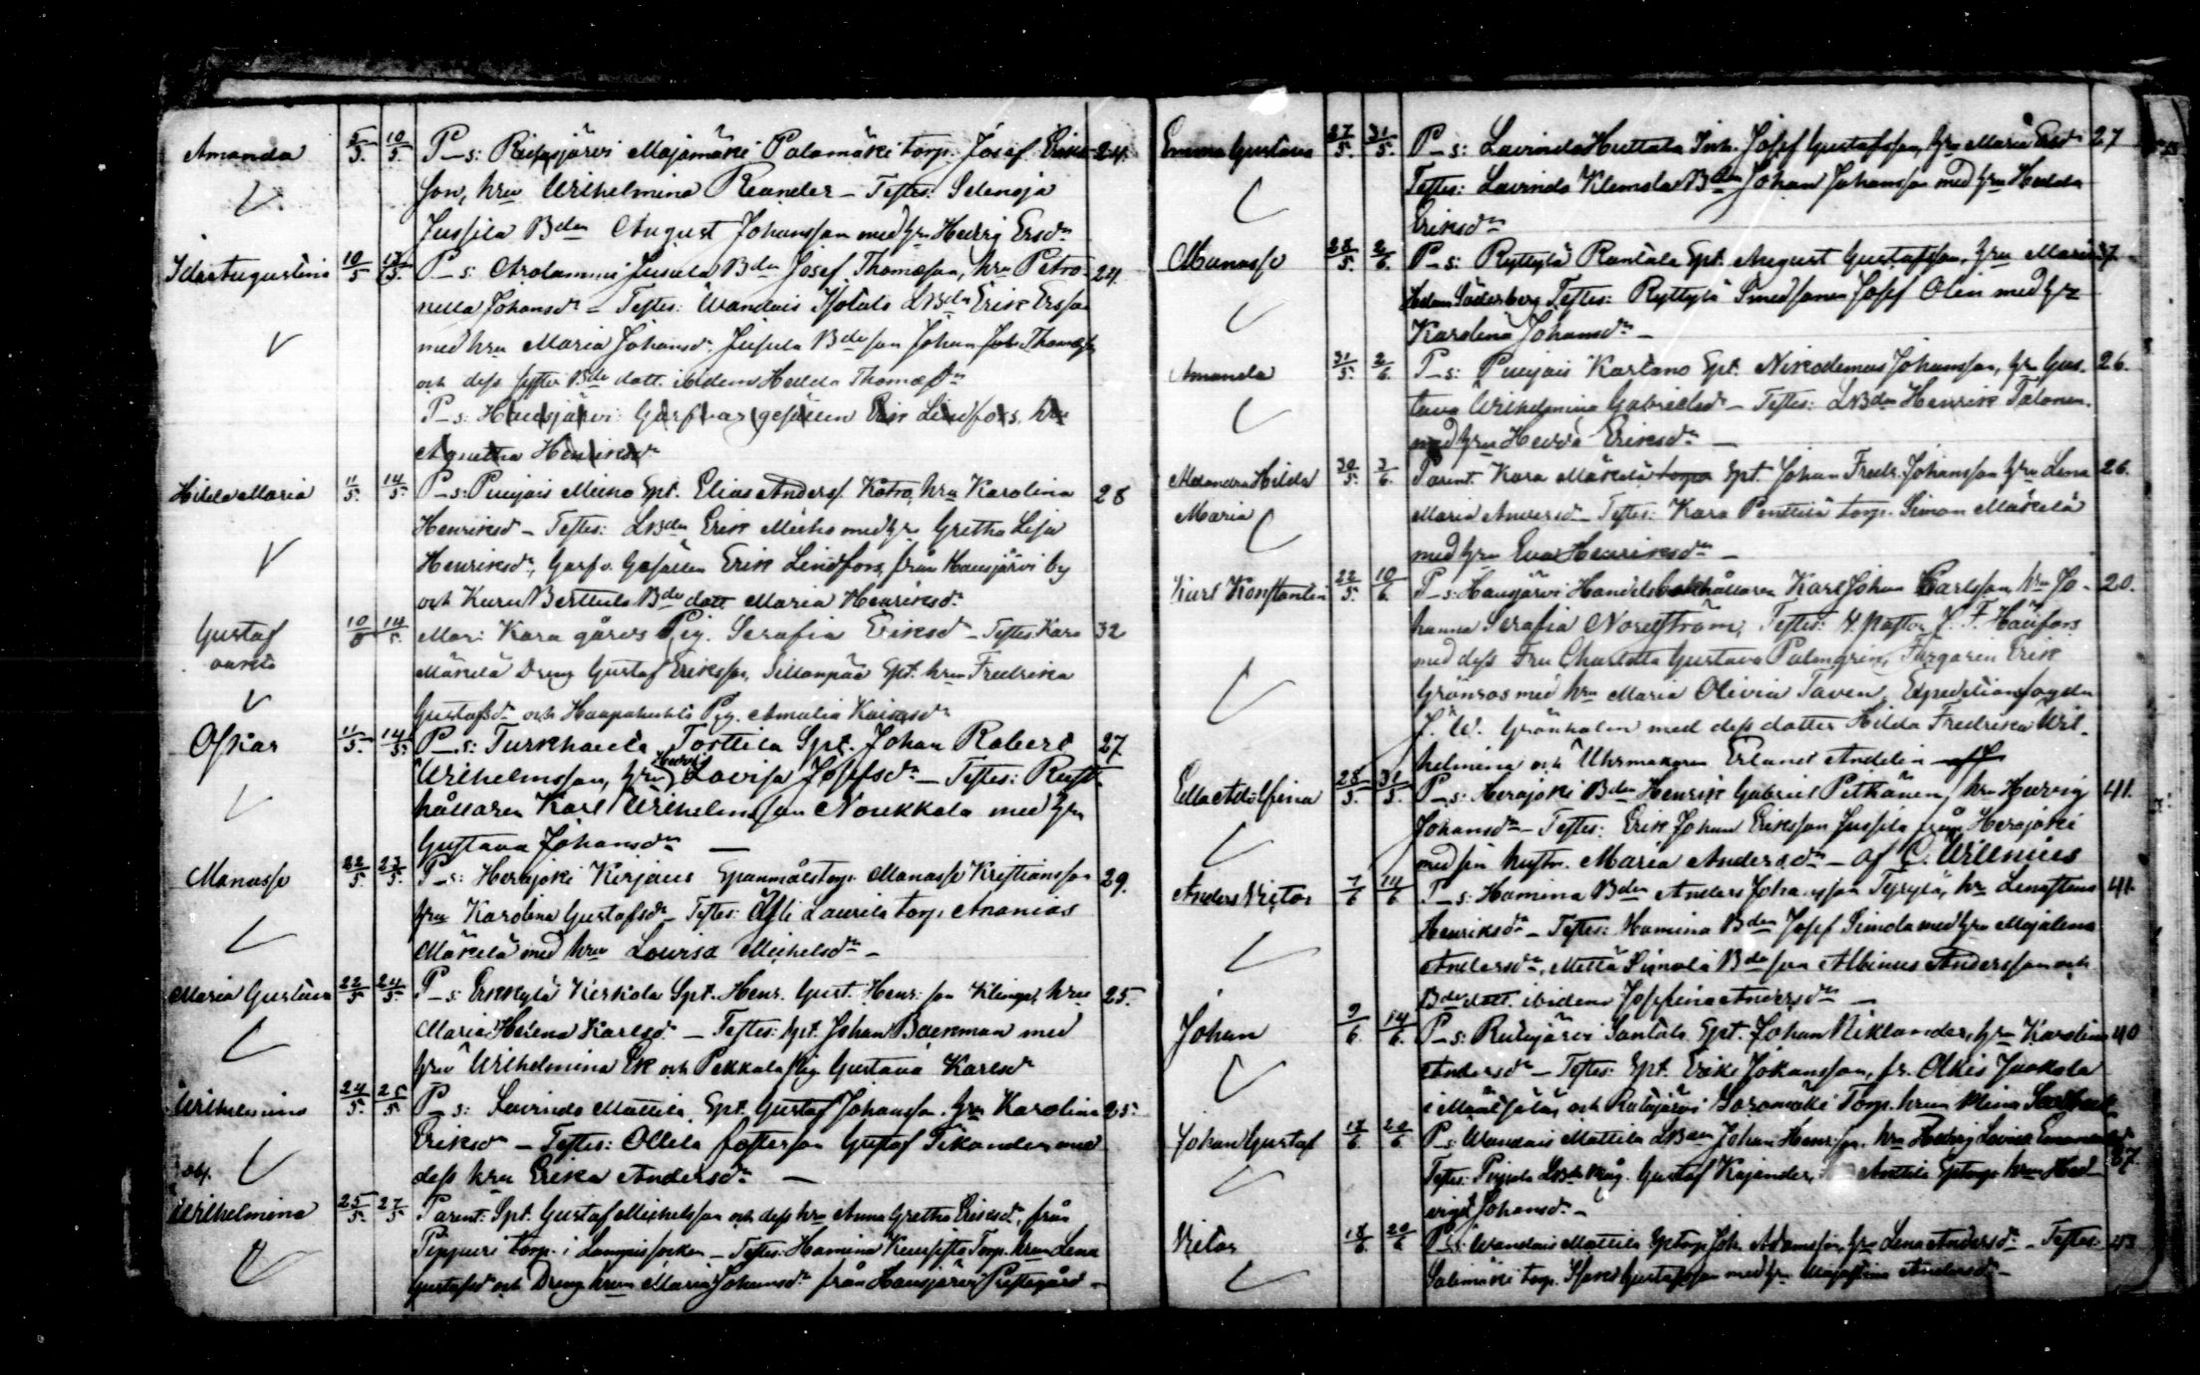 Amanda 5/5. 10/5. P_s: Ridasjärvi Majamäki Palomäki torp. Josef Eriks- 24.
son, hru Wilhelmina Reander – Testes: Selenoja
Jussila Bdn August Johansson med hru Hedvig Ersdr
Ida Augustina 10/5 13/5. P_s: Arolammi Jusula Bdn Josef Thomasson, hru Petro- 24.
nella Johansdr – Testes: Wandais Isotalo LBdn Erik Ersson
med hru Maria Johansdr Jusula Bdeson Johan Thomasson
och dess syster Bde dott. ibidem Hedda Thomasdr
P_s: Hausjärvi Garfvaregesällen Erik Lindfors, hru
Agnetha Henriksdr
Hilda Maria 11/5. 14/5. P_s: Punjais Meino Spt. Elias Anders. Katro, hru Karolina 28
Henriksdr – Testes: LBdn Erik Meino med hru Gretha Lisa
Henriksdr, Garfv. Gesällen Erik Lindfors, från Hausjärvi by
och Kuru Berttula Bde dott Maria Henriksdr
Gustaf 10/5 14/5. Mar: Kara gårds Pig. Serafia Eriksdr – Testes: Kara 32
oäkta Mäkelä Dreng Gustaf Eriksson, Sillanpää Spt. hru Fredrika
Gustafsdr och Haapahuhta Pig. Amalia Kaisasdr
Oskar 11/5. 14/5. P_s: Turkhauta Torttila Spt. Johan Robert 27
Wilhelmsson, hru Hedvig Lovisa Josefsdr – Testes: Rust-
hållaren Karl Wilhelmsson Noukkala med hru
Gustava Johansdr –
Manasse 22/5. 23/5. P_s: Herajoki Kirjaus Spanmålstorp. Manasse Kristiansson 29.
hru Karolina Gustafsdr – Testes: Laurila torp. Ananias
Mäkelä med hru Lovisa Michelsdr –
Maria Gustava 22/5 24/5. P_s: Erkkylä Kerkola Spt. Henr. Gust. Henr:son Klinga, hru 25.
Maria Helena Karlsdr – Testes: Spt. Johan Backman med
hru Wilhelmina Ek och Pekkala Pig. Gustava Karlsdr
Wilhelmina 24/5. 25/5 P_s: Lavinda Mattila Spt. Gustaf Johansson, hru Karolina 25.
Eriksdr – Testes: Ollila fosterson Gustaf Sikander med
dess hru Erika Andersdr –
Wilhelmina 25/5. 27/5 Parent: Spt. Gustaf Michelsson och dess hru Anna Gretha Ericsdr, från
Pippuri torp i Lampis socken – Testes: Hamina Torp. hrun Lena
Gustafsdr och Dreng hrun Maria Johansdr från Hausjärvi Prestegård –
Emma Gustava 27/5. 31/5. P_s: Lavinda Huttala Inh. Josef Gustafsson, hru Maria Ersdr 27
Testes: Lavinda Klemola Bdn Johan Johansson med hru Hedda
Eriksdr
Manasse 28/5. 2/6. P_s: Ryttylä Rantala Spt. August Gustafsson, hru Maria 37.
Helena Söderberg Testes: Ryttylä Smedsonen Josef Olin med hru
Karolina Johansdr –
Amanda 31/5. 2/6. P_s: Punjais Kartano Spt. Nikodemus Johansson, hru Gus- 26.
tava Wilhelmina Gabrielsdr – Testes: LBdn Henrik Talonen
med hru Hedda Eriksdr –
Alexandra Hilda 30/5. 3/6. Parent. Kara Mäkelä torp Spt. Johan Fredr. Johansson hru Lena 26.
Maria Maria Andersdr – Testes: Kara Penttilä torp. Simon Mäkelä
med hru Eva Henriksdr –
Karl Konstantin 22/5. 10/6. P_s: Hausjärvi Handelsbokhållaren Karl Johan Carlsson, hru Jo- 20.
hanna Serafia Nordström, Testes: V. Pastor J. F. Häufors
med dess Fru Charlotta Gustava Palmgren, Färgaren Erik
Grönroos med hru Maria Olivia Taven, Expeditionsfogden
J. W. Grönholm med dess dotter Hilda Fredrika Wil-
helmina och Uhrmakaren Erland Andelin
Edla Adolfina 28/5. 31/5. P_s: Herajoki Bdn Henrik Gabriel Pitkänen, hru Hedvig 41.
Johansdr – Testes: Erik Johan Eriksson Jussila från Herajoki
med sin hustru Maria Andersdr – af G. Willenius
Anders Viktor 7/6 14/6 P_s: Hamina Bdn Anders Johansson, hru Lenastina 41.
Henriksdr – Testes: Hamina Bdn Josef Simola med hru Majalena
Andersdr, Mettä Simola Bdeson Albinus Andersson och
Bde dott. ibidem Josefina Andersdr –
Johan 9/6. 14/6. P_s: Ridasjärvi Santala Spt. Johan Niklander, hru Karolina 40
Andersdr – Testes: Spt. Erik Johansson, fr. Olkis Juokola
i Mäntsälä, och Ridasjärvi Soromäki Torp. hrun Stina
Johan Gustaf 18/6 20/6 P_s: Wandais Mattila LBdn Johan Henr:son, hru Hedvig Lovisa
Testes: LBde måg. Gustaf Kajander, Anttila Sptorp. hrun Hed- 37.
vig Johansdr –
Viktor 18/6. 20/6 P_s: Wandais Mattila Sptorp. Joh. Adamsson, hru Lena Andersdr – Testes: 43
Salimäki torp. Isak Gustafsson med hru Majastina Andersdr –